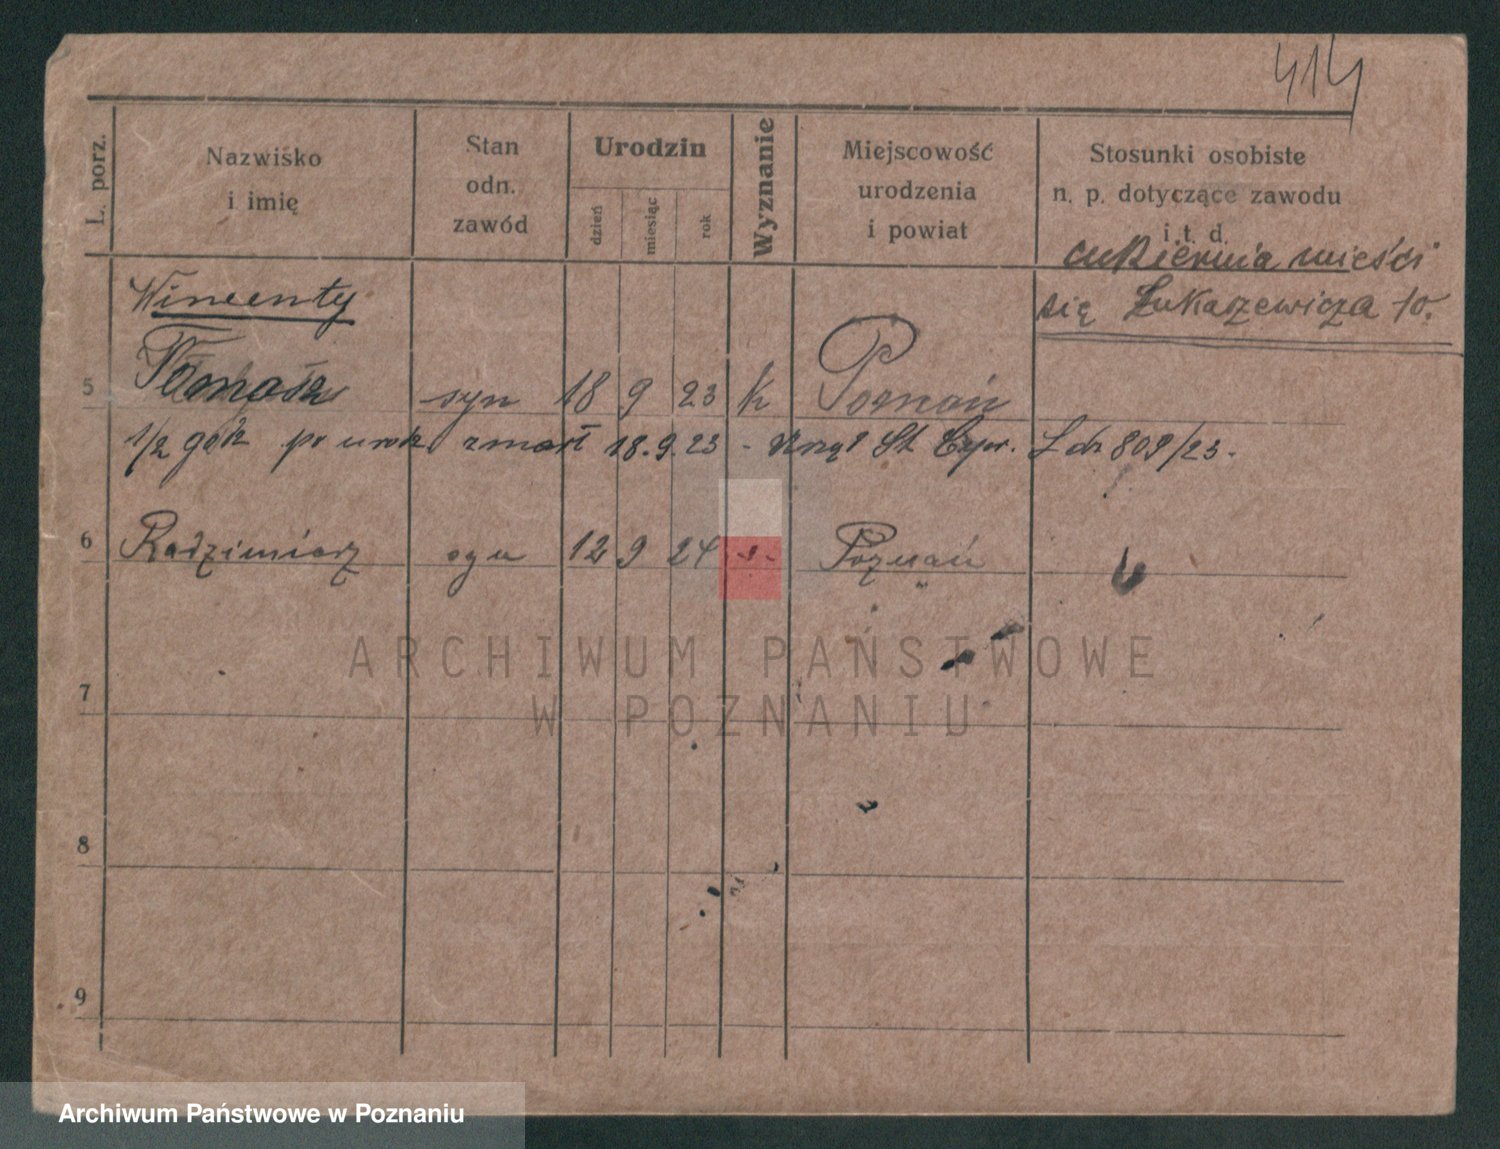 414
L. porz.
Nazwisko i imię
Stan odn. zawód
Urodzin
dzień miesiąc rok
Wyznanie
Miejscowość urodzenia i powiat
Stosunki osobiste n. p. dotyczące zawodu i t. d.
cukiernia mieści
się Łukaszewicza 10.
Wincenty
5 Tomasz syn 18 9 23 k Poznań
1/2 godz po urodz. zmarł 18.9.23 - Urząd St. Cyw. L dz 809/23.
6 Radzimierz syn 12 9 24 -"- Poznań
7
8
9
ARCHIWUM PAŃSTWOWE
W POZNANIU
Archiwum Państwowe w Poznaniu